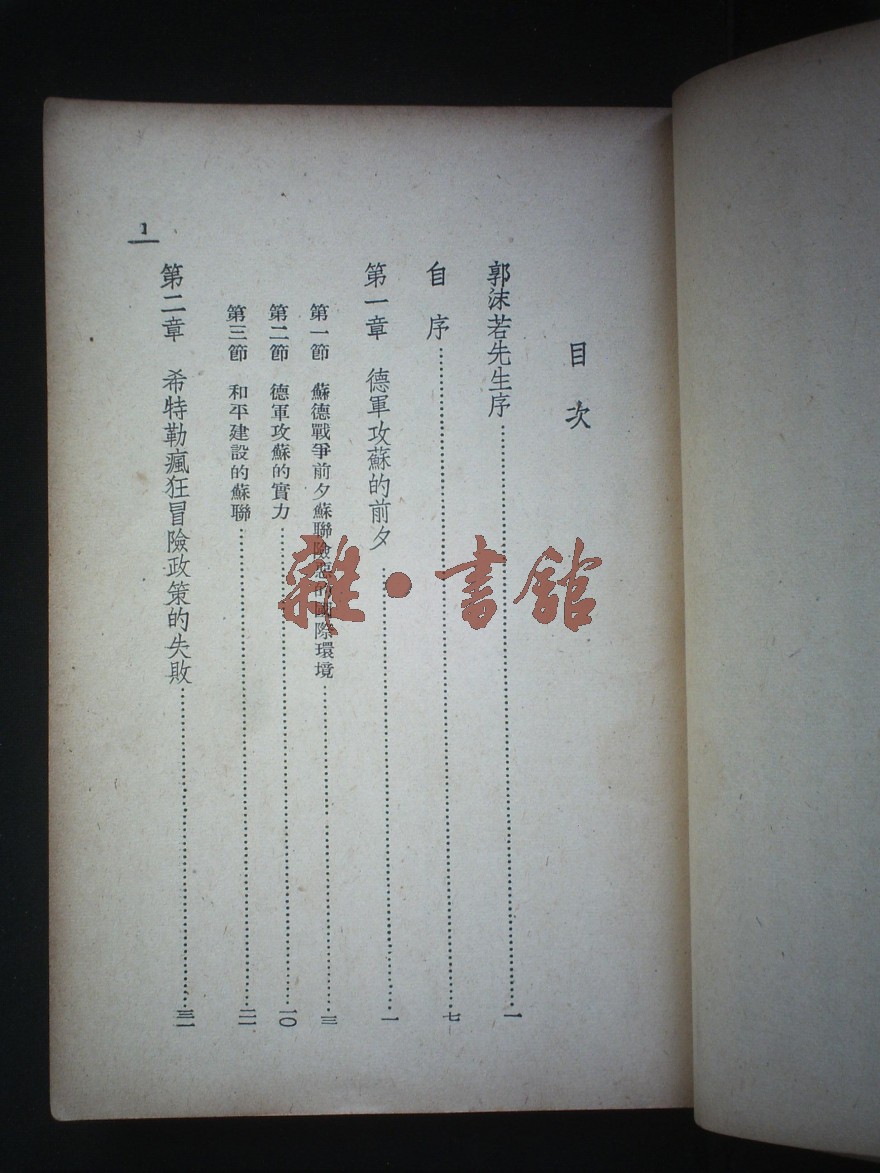 目次
郭沫若先生序……一
自序……七
第一章 德軍攻蘇的前夕……一
第一節 蘇德戰爭前夕蘇聯險惡的國際環境……三
第二節 德軍攻蘇的實力……一〇
第三節 和平建設的蘇聯……二一
第二章 希特勒瘋狂冒險政策的失敗……三一
1
雜·書館